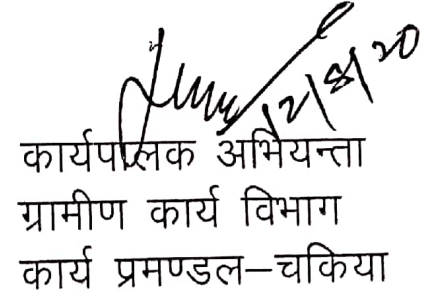 12/8/20
कार्यपालक अभियन्ता
ग्रामीण कार्य विभाग
कार्य प्रमण्डल–चकिया